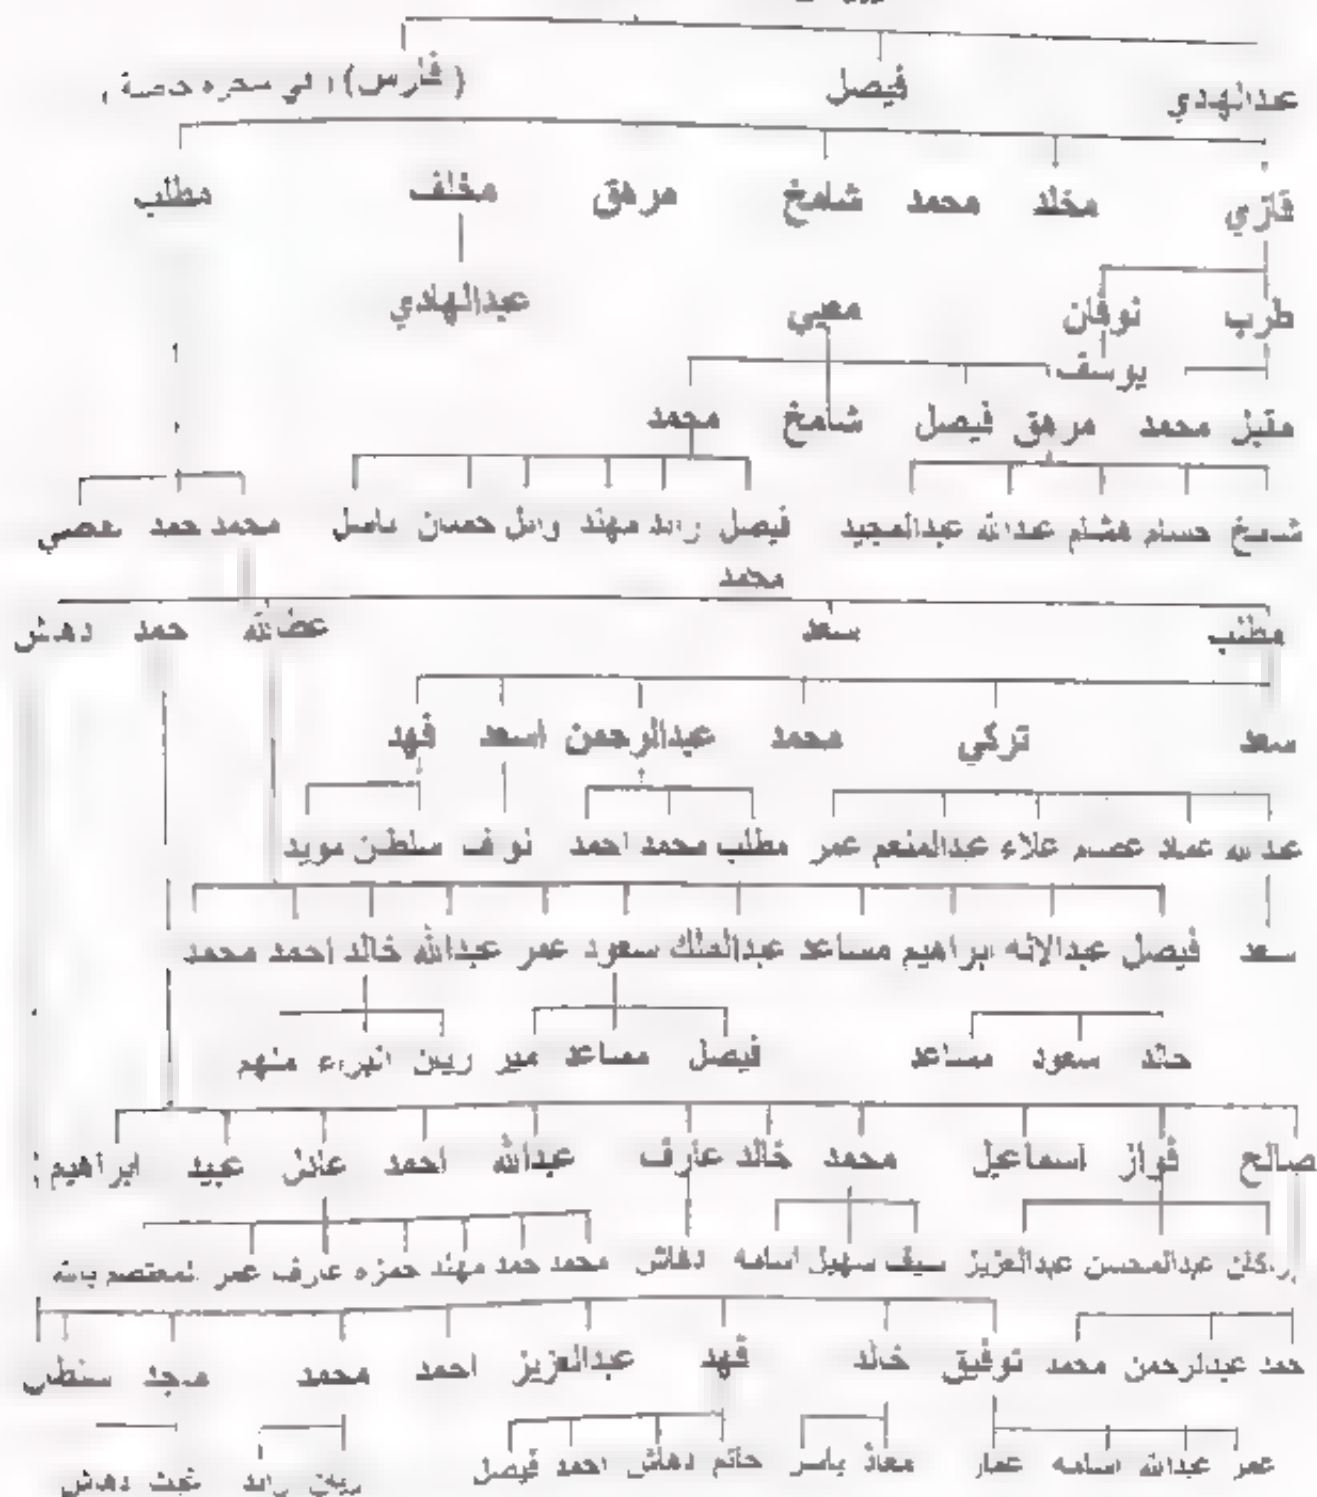 عبدالهادي فيصل (فارس)
قازي مخلد محمد شامخ مرهق مخلف مطلب
طرب نوفان معيي عبدالهادي
يوسف
مقبل محمد مرهق فيصل شامخ محمد
شامخ حسام هشام عبدالله عبدالمجيد فيصل رائد مهند وائل حسان باسل محمد حمد
محمد
مطلب سعد عضالله حمد دهاش
سعد تركي محمد عبدالرحمن اسعد فهد
عبدالله عماد عصام علاء عبدالمنعم عمر مطلب محمد احمد نوف سلطن مويد
سعد فيصل عبدالاله ابراهيم مساعد عبدالملك سعود عمر عبدالله خالد احمد محمد
خالد سعود مساعد فيصل مساعد ريان البراء
صالح فواز اسماعيل محمد خالد عارف عبدالله احمد عادل عبيد ابراهيم
راكان عبدالمحسن عبدالعزيز سيف سهيل اسامه دهاش محمد حمد مهند حمزه عارف عمر المعتصم بالله
حمد عبدالرحمن محمد توفيق خالد فهد عبدالعزيز احمد محمد ماجد سلطان
عمر عبدالله اسامه عمار معاذ ياسر حاتم دهاش احمد فيصل ريان رائد دهاش